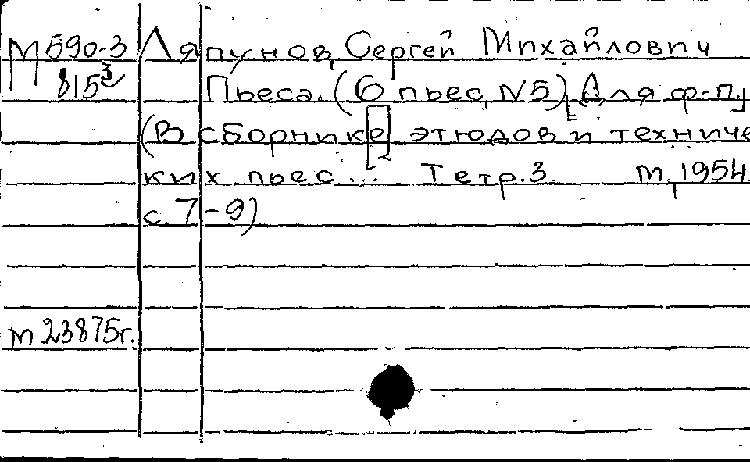 М590-3 Ляпунов, Сергей Михайлович
815³ Пьеса. (6 пьес, N5) Для ф-п.
(В сборнике этюдов и техниче
ких пьес... Тетр. 3 м, 1954
с 7-9)
м 23875г.